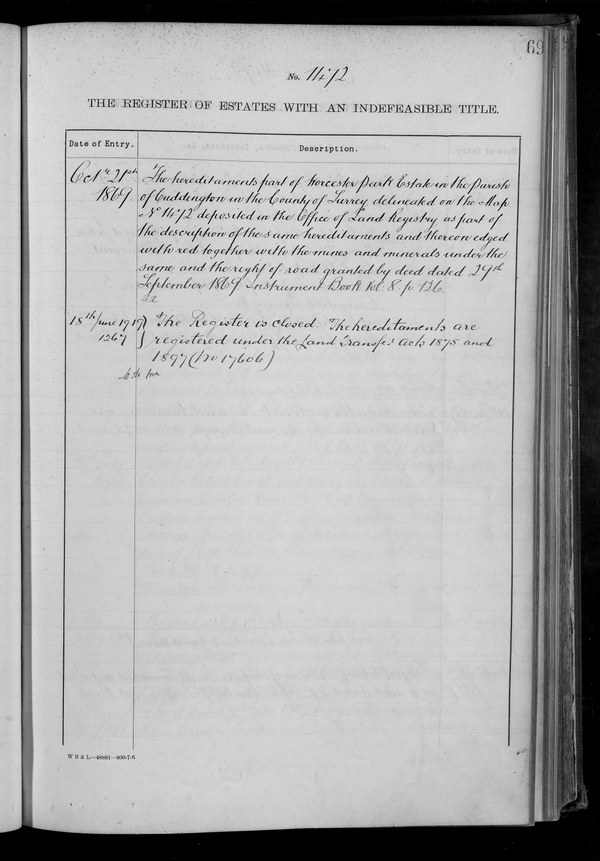 69
No. 1472
THE REGISTER OF ESTATES WITH AN INDEFEASIBLE TITLE.
Date of Entry.
Description.
Octr. 21st
1869
The hereditaments part of Worcester Park Estate in the Parish
of Cuddington in the County of Surrey delineated on the Map
No 1472 deposited in the Office of Land Registry as part of
the description of the same hereditaments and thereon edged
with red together with the mines and minerals under the
same and the right of road granted by deed dated 29th
September 1869. Instrument Book Vol. 8 p 136.
18th June 1919
1267
The Register is closed. The hereditaments are
registered under the Land Transfer Acts 1875 and
1897 (No 17606)
W B & L—48881—800-7-6